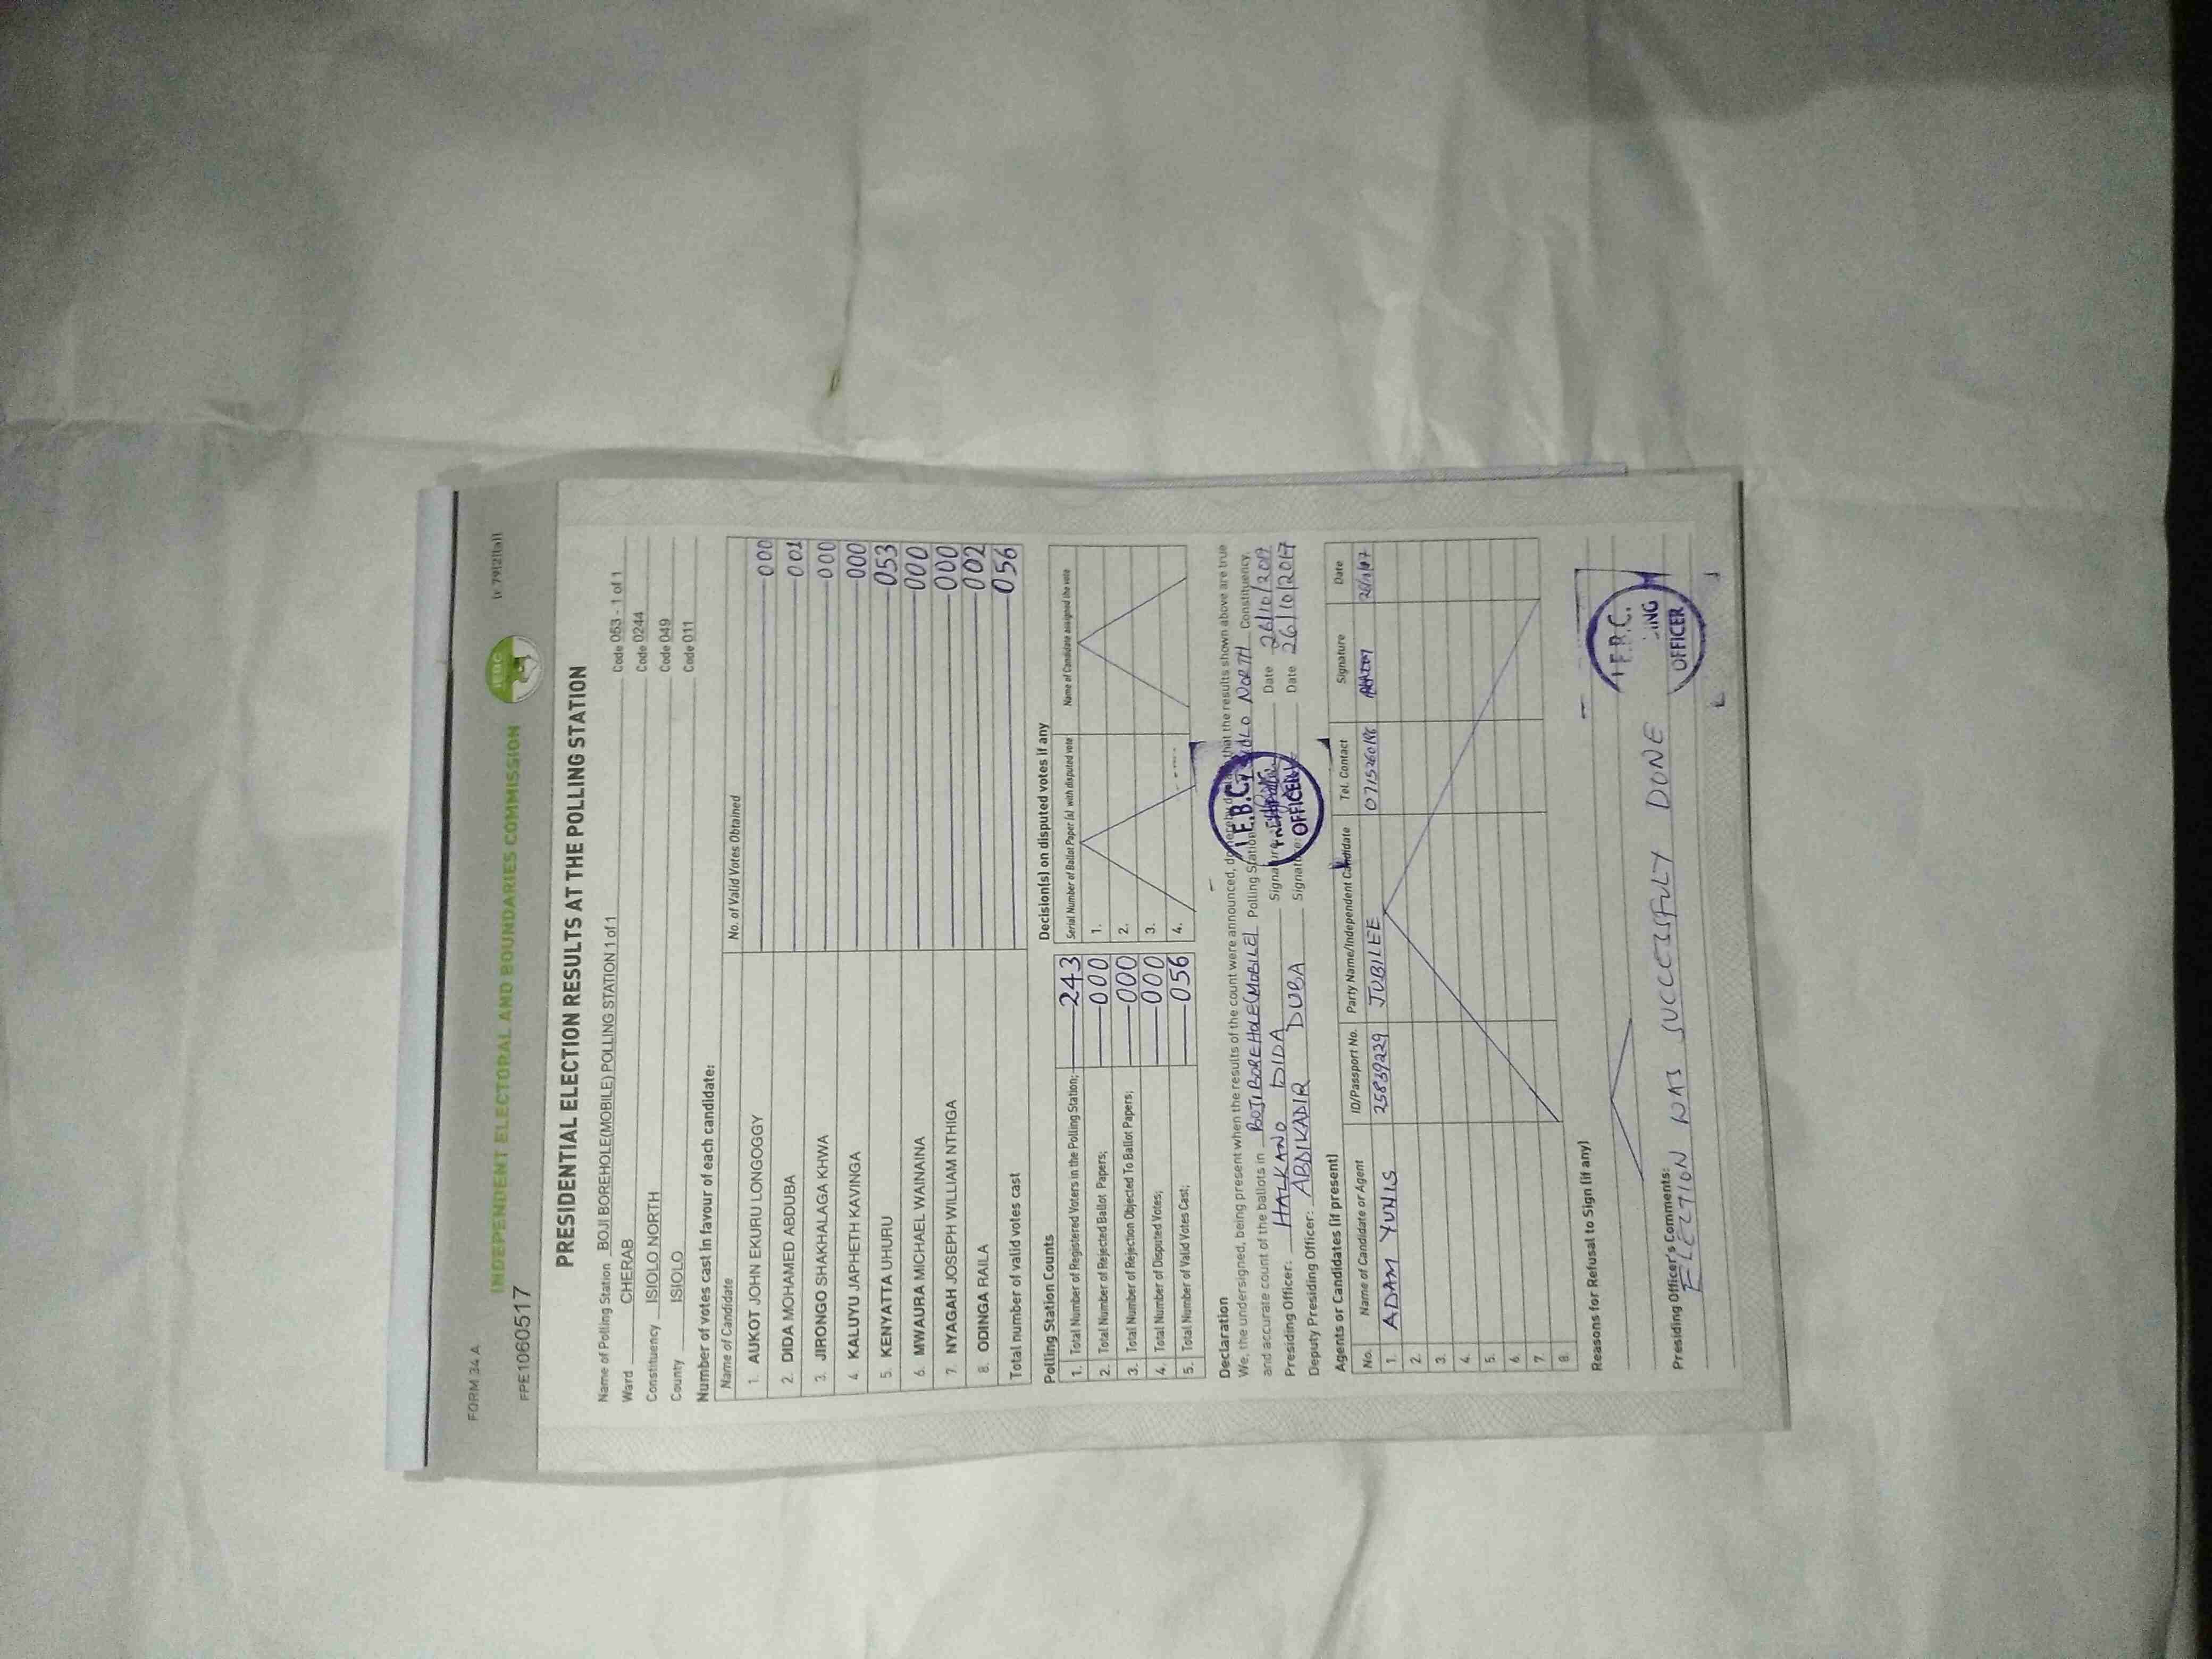 FORM 34 A
FPE1060517
INDEPENDENT ELECTORAL AND BOUNDARIES COMMISSION
IEBC
PRESIDENTIAL ELECTION RESULTS AT THE POLLING STATION
Name of Polling Station BOJI BOREHOLE(MOBILE) POLLING STATION 1 of 1 Code 053 - 1 of 1
Ward CHERAB Code 0244
Constituency ISIOLO NORTH Code 049
County ISIOLO Code 011
Number of votes cast in favour of each candidate:
Name of Candidate No. of Valid Votes Obtained
1. AUKOT JOHN EKURU LONGOGGY 000
2. DIDA MOHAMED ABDUBA 001
3. JIRONGO SHAKHALAGA KHWA 000
4. KALUYU JAPHETH KAVINGA 000
5. KENYATTA UHURU 053
6. MWAURA MICHAEL WAINAINA 000
7. NYAGAH JOSEPH WILLIAM NTHIGA 000
8. ODINGA RAILA 002
Total number of valid votes cast 056
Polling Station Counts
1. Total Number of Registered Voters in the Polling Station; 243
2. Total Number of Rejected Ballot Papers; 000
3. Total Number of Rejection Objected To Ballot Papers; 000
4. Total Number of Disputed Votes; 000
5. Total Number of Valid Votes Cast; 056
Decision(s) on disputed votes if any
Serial Number of Ballot Paper (s) with disputed vote Name of Candidate assigned the vote
1.
2.
3.
4.
Declaration
We, the undersigned, being present when the results of the count were announced, do hereby that the results shown above are true
and accurate count of the ballots in BOJI BOREHOLE(MOBILE) Polling Station NORTH Constituency.
Presiding Officer: HALKANO DIDA Signature: Date 26/10/2017
Deputy Presiding Officer: ABDIKADIR DUBA Signature: Date 26/10/2017
I.E.B.C.
PRESIDING
OFFICER
Agents or Candidates (if present)
No. Name of Candidate or Agent ID/Passport No. Party Name/Independent Candidate Tel. Contact Signature Date
1. ADAM YUNIS 25839229 JUBILEE
2.
3.
4.
5.
6.
7.
8.
Reasons for Refusal to Sign (if any)
Presiding Officer's Comments:
ELECTION WAS SUCCESSFULY DONE
I.E.B.C.
OFFICER